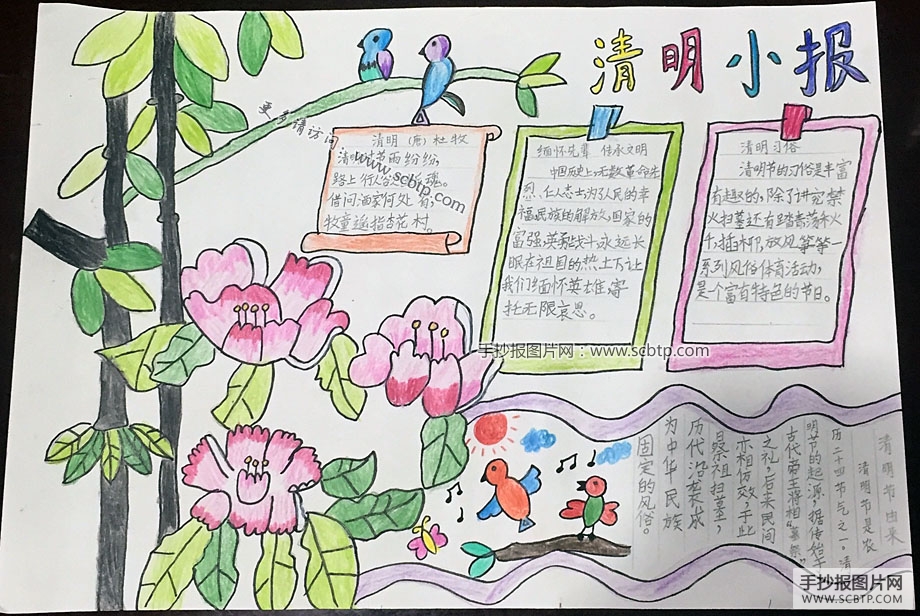 清明小报
更多请访问:
www.scbtp.com
清明 (唐) 杜牧
清明时节雨纷纷,
路上行人欲断魂。
借问酒家何处有,
牧童遥指杏花村。
缅怀先辈 传承文明
中国历史上无数革命先
烈、仁人志士为了人民的幸
福,民族的解放,国家的
富强,英勇战斗永远长
眠在祖国的热土下,让
我们缅怀英雄,寄
托无限哀思。
清明习俗
清明节的习俗是丰富
有趣的,除了讲究禁
火扫墓还有踏青荡秋
千,插柳放风筝等一
系列风俗体育活动,
是个富有特色的节日。
手抄报图片网:www.scbtp.com
清明节由来
清明节是农
历二十四节气之一。清
明节的起源,据传始于
古代帝王将相“墓祭”
之礼,后来民间
亦相仿效,于此
日祭祖扫墓,
历代沿袭成
为中华民族
固定的风俗。
手抄报图片网
WWW.SCBTP.COM